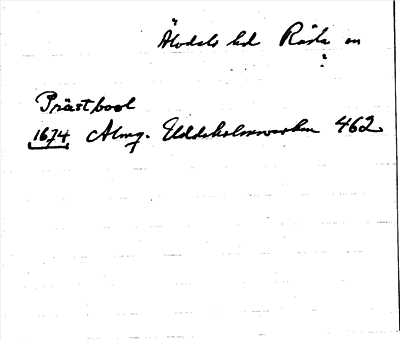 Älvdals hd Råda sn
Prästbool
1674 Almq. Uddeholmsverken 462